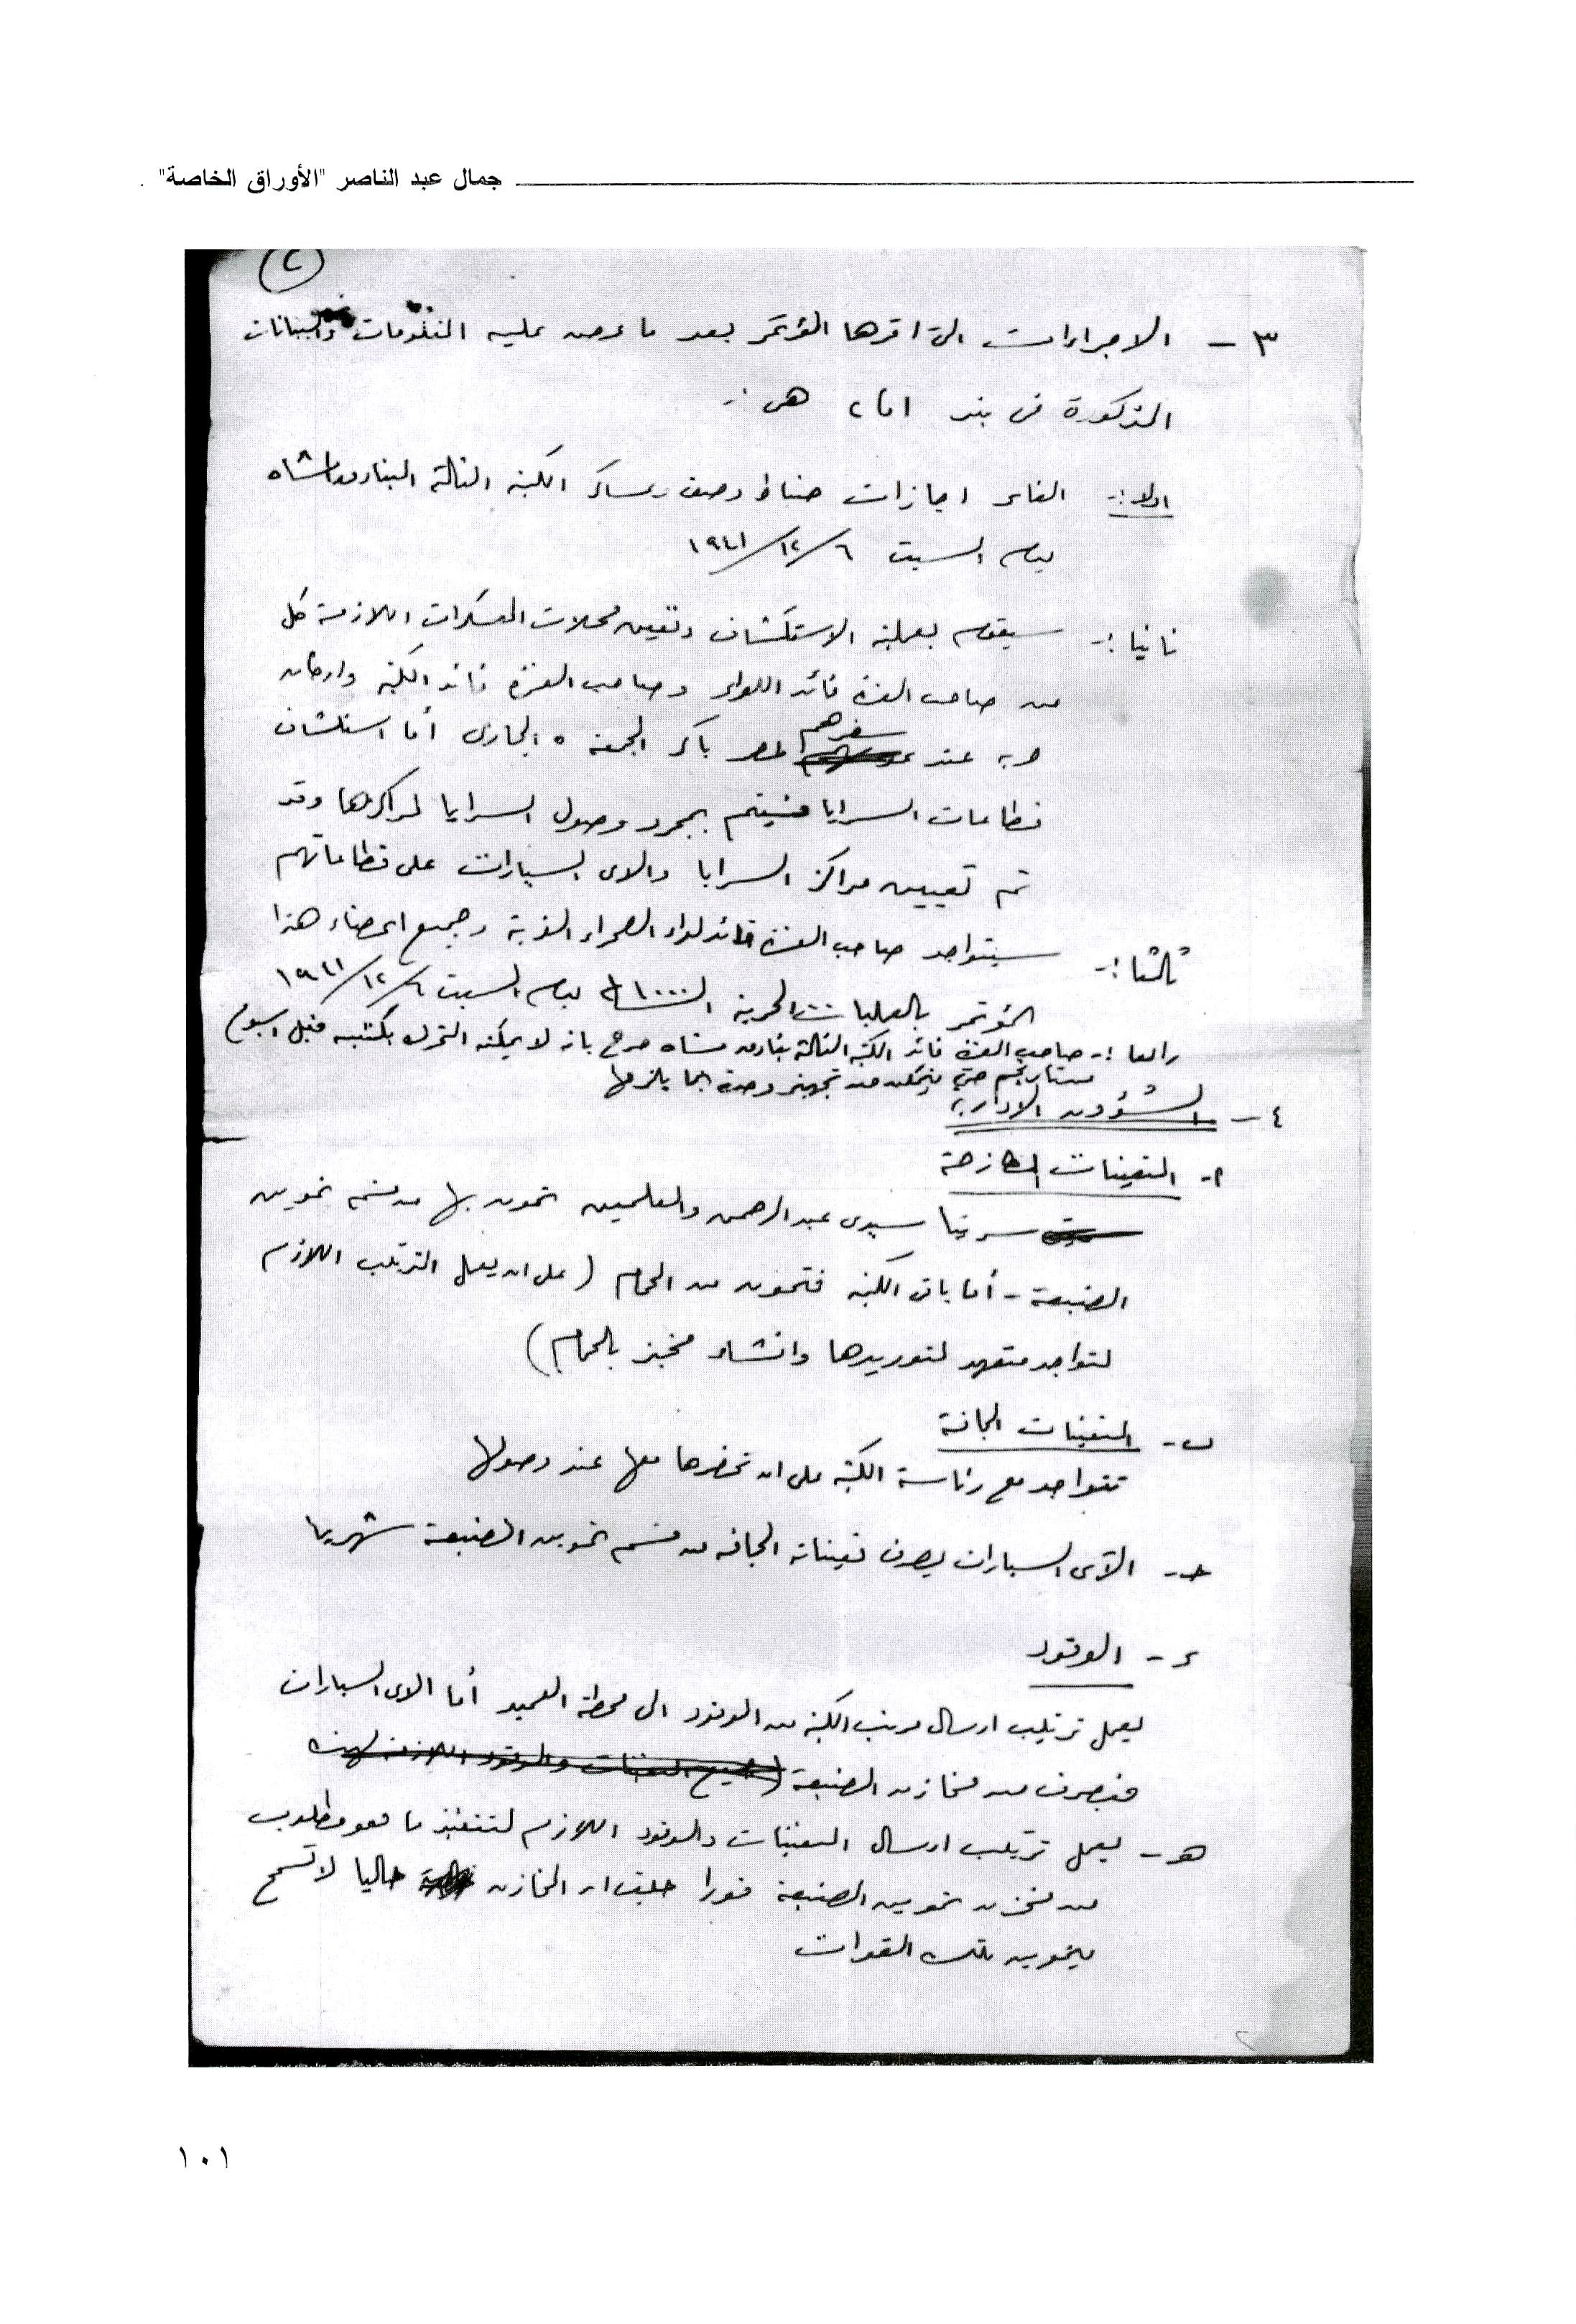 جمال عبد الناصر "الأوراق الخاصة" .
(٢)
٣ - الاجراءات التى اقرها المؤتمر بعد ما عرض عليه المعلومات والبيانات
المذكورة فى بند ١ ، ٢ هى :-
اولا :- الغاء اجازات ضباط وصف وعساكر الكتيبة الثالثة البنادق المشاه
يوم السبت ٦/١٢/١٩٤١
ثانيا :- سيقوم بعملية الاستكشاف وتعيين محلات المعسكرات اللازمة كل
من صاحب العزة قائد اللواء وصاحب العزة قائد الكتيبة واركان
حربه عند سفرهم لمصر باكر الجمعة ٥ الجارى أما استكشاف
قطاعات السرايا فسيتم بمجرد وصول السرايا لمراكزها وقد
تم تعيين مراكز السرايا والاى السيارات على قطاعاتهم
ثالثا :- سيتواجد صاحب العزة قائد لواء الصحراء الغربية وجميع اعضاء هذا
المؤتمر بالعمليات الحربية الساعة ١٠٠٠ يوم السبت ٦/١٢/١٩٤١
رابعا :- صاحب العزة قائد الكتيبة الثالثة بنادق مشاه صرح بانه لا يمكنه التحرك بكتيبته قبل اسبوع
من تاريخه حتى يتمكن من تجهيز وحدته بما يلزمها
٤ - الشؤون الادارية
أ - التعيينات الطازجة
سريتا سيدى عبد الرحمن والعلمين تتمون بها من قسم تموين
الضبعة - أما باقى الكتيبة فتتمون من الحمام ( على ان يعمل الترتيب اللازم
لتواجد متعهد لتوريدها وانشاء مخبز بالحمام )
ب - التعيينات الجافة
تتواجد مع رئاسة الكتيبة على ان تحضرها معها عند وصولها
حـ - الآى السيارات يصرف تعييناته الجافه من قسم تموين الضبعة شهريا
د - الوقود
يعمل ترتيب ارسال مرتب الكتيبة من الوقود الى محطة العميد أما الاى السيارات
فيصرف من مخازن الضبعة (
هـ - يعمل ترتيب ارسال التعيينات والوقود اللازم لتنفيذ ما هو مطلوب
من مخزن تموين الضبعة فورا حيث ان المخازن حاليا لا تسمح
بتموين تلك القوات
١٠١